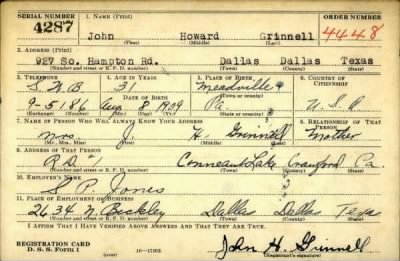 SERIAL NUMBER 1. NAME (Print) ORDER NUMBER
4287 John Howard Grinnell 4448
(First) (Middle) (Last)
2. ADDRESS (Print)
927 So. Hampton Rd. Dallas Dallas Texas
(Number and street or R. F. D. number) (Town) (County) (State)
3. TELEPHONE 4. AGE IN YEARS 5. PLACE OF BIRTH 6. COUNTRY OF CITIZENSHIP
31 Meadville
DATE OF BIRTH (Town or county)
9-5186 Aug 8 1909 Pa. U.S.A.
(Exchange) (Number) (Mo.) (Day) (Yr.) (State or country)
7. NAME OF PERSON WHO WILL ALWAYS KNOW YOUR ADDRESS 8. RELATIONSHIP OF THAT PERSON
Mrs. J. H. Grinnell Mother
(Mr., Mrs., Miss) (First) (Middle) (Last)
9. ADDRESS OF THAT PERSON
R.D. #1 Conneaut Lake Crawford Pa.
(Number and street or R. F. D. number) (Town) (County) (State)
10. EMPLOYER'S NAME
S. P. Jones
11. PLACE OF EMPLOYMENT OR BUSINESS
2634 N. Beckley Dallas Dallas Texas
(Number and street or R. F. D. number) (Town) (County) (State)
I AFFIRM THAT I HAVE VERIFIED ABOVE ANSWERS AND THAT THEY ARE TRUE.
REGISTRATION CARD
D. S. S. Form 1 John H. Grinnell
(Registrant's signature)